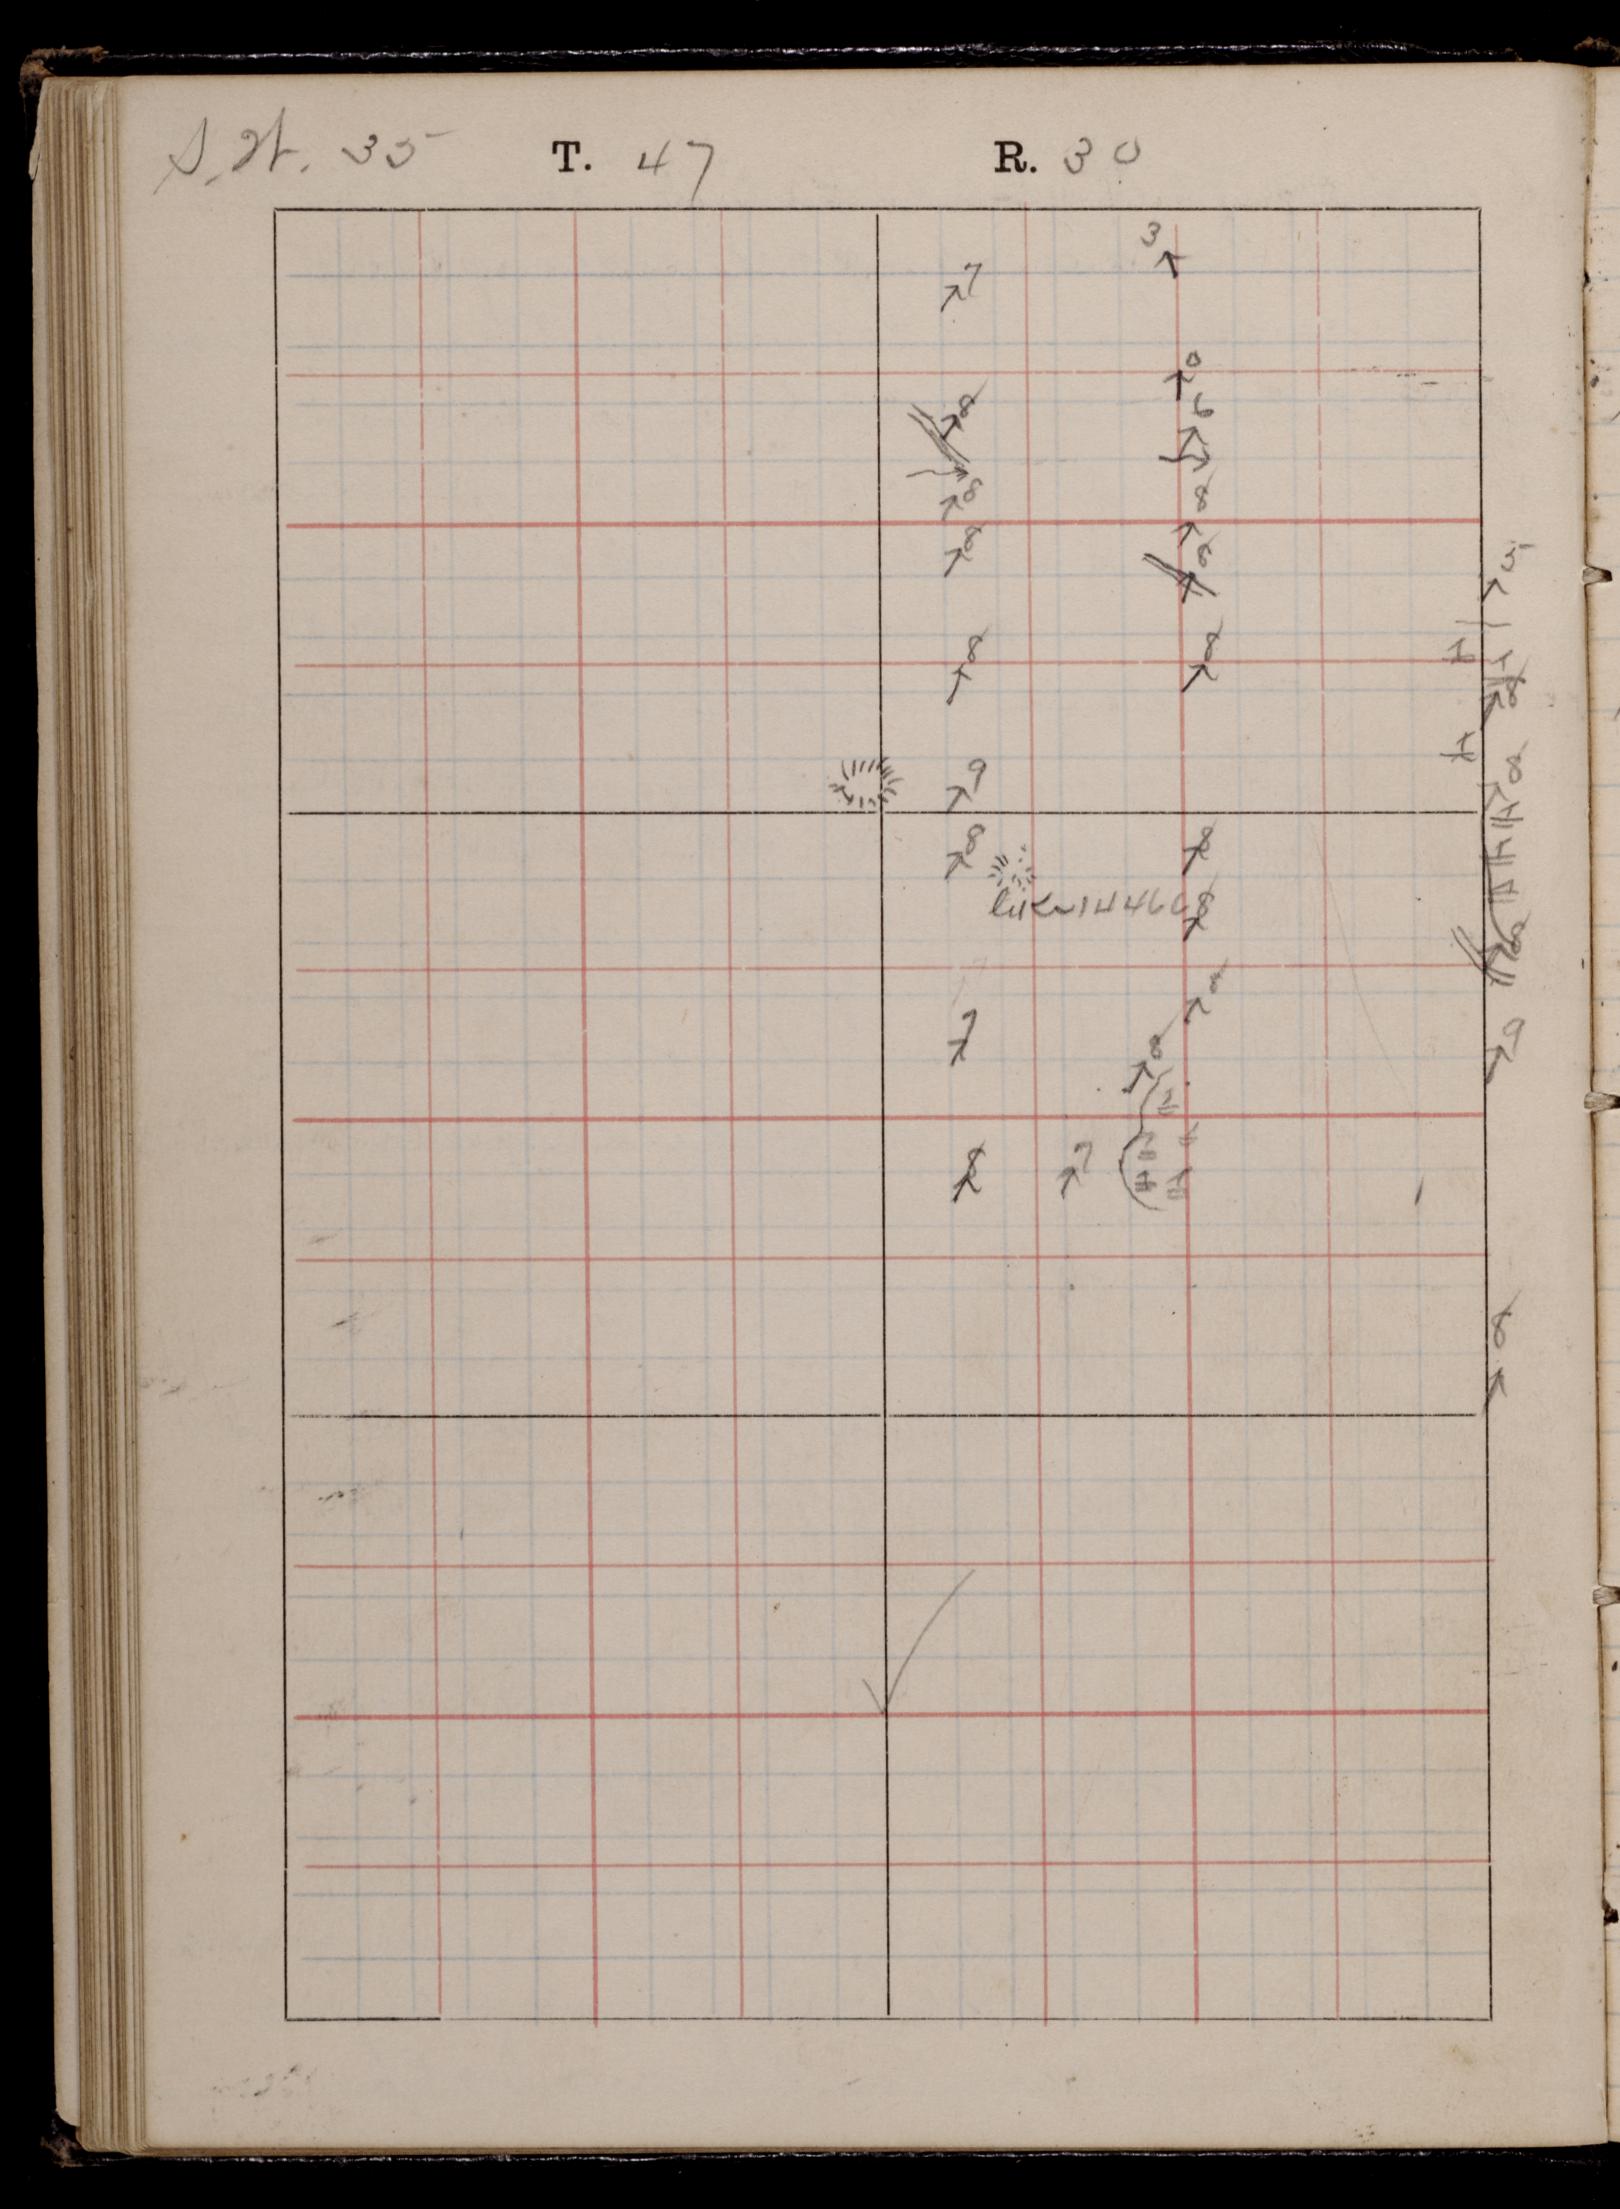 S.W. 35 T. 47 R. 30
3
7
0
6
8
8
8
8
8
6
5
8
8
8
8
9
8
8
like 14460
8
8
8
9
7
8
8
7
8